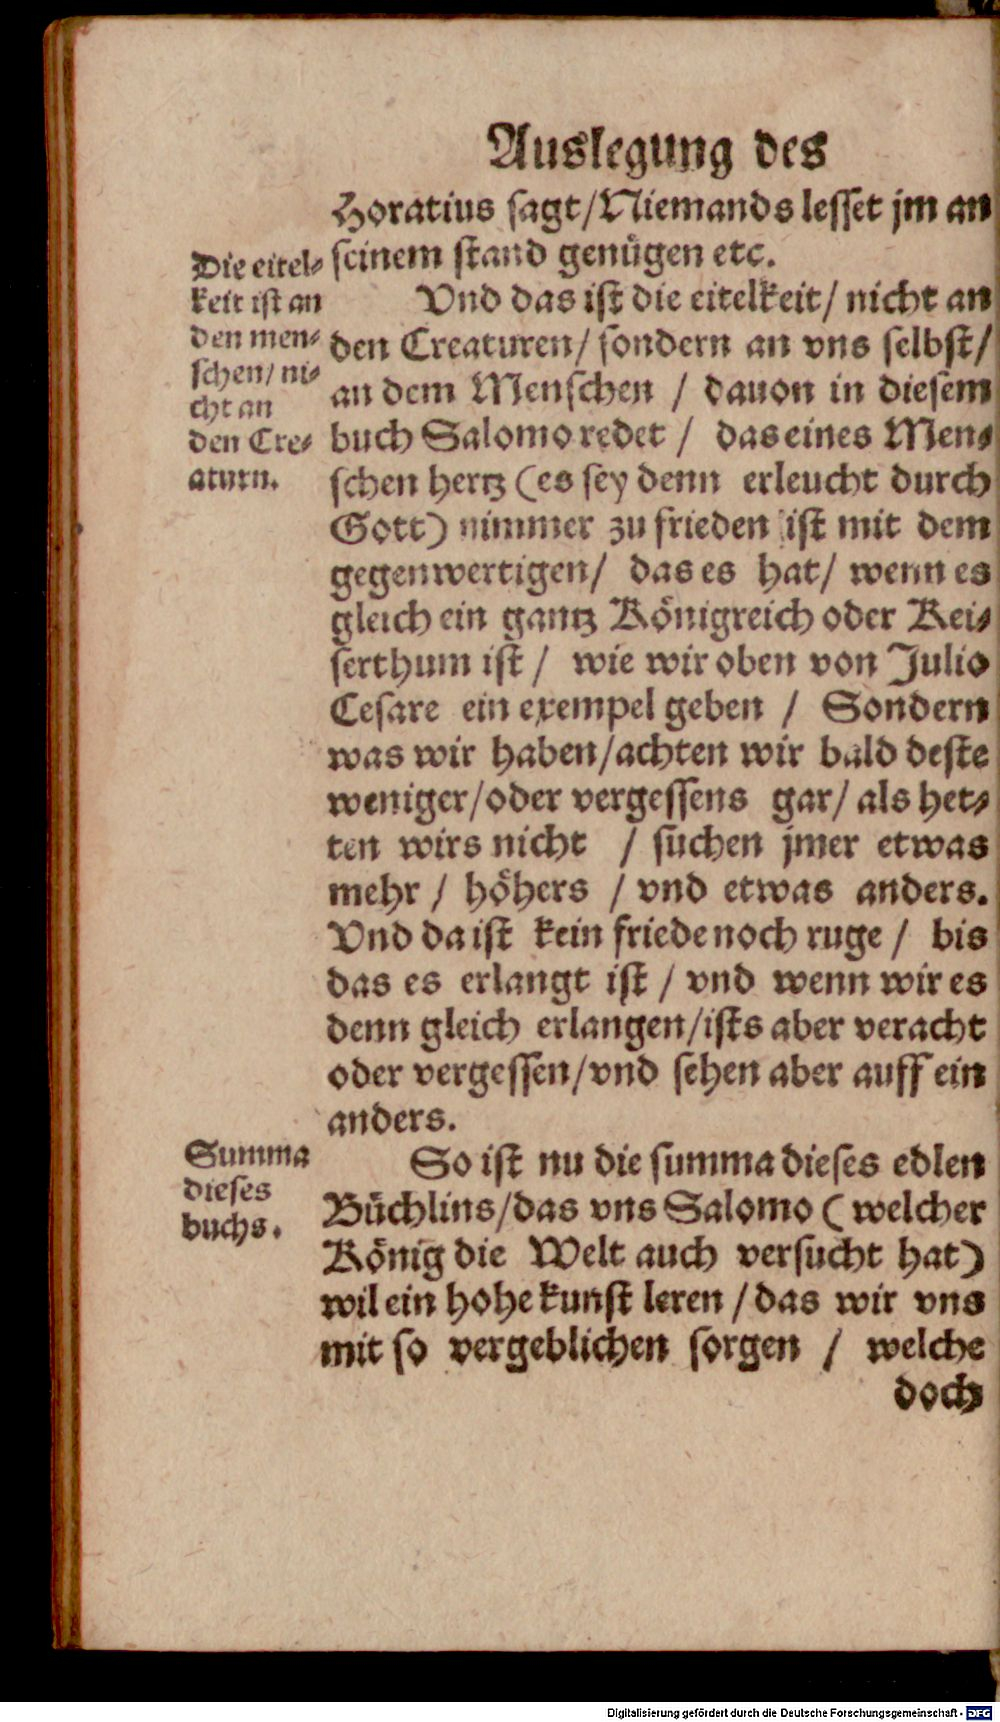 Auslegung des
Horatius sagt/Niemands lesset jm an
seinem stand genügen etc.
Die eitel⸗
keit ist an
den men⸗
schen/ ni⸗
cht an
den Cre⸗
aturn.
Vnd das ist die eitelkeit/ nicht an
den Creaturen/ sondern an vns selbst/
an dem Menschen / dauon in diesem
buch Salomo redet / das eines Men⸗
schen hertz (es sey denn erleucht durch
Gott) nimmer zu frieden ist mit dem
gegenwertigen/ das es hat/ wenn es
gleich ein gantz Königreich oder Kei⸗
serthum ist / wie wir oben von Julio
Cesare ein exempel geben / Sondern
was wir haben/achten wir bald deste
weniger/oder vergessens gar/ als het⸗
ten wirs nicht / suchen jmer etwas
mehr / höhers / vnd etwas anders.
Vnd da ist kein friede noch ruge / bis
das es erlangt ist / vnd wenn wir es
denn gleich erlangen/ists aber veracht
oder vergessen/vnd sehen aber auff ein
anders.
Summa
dieses
buchs.
So ist nu die summa dieses edlen
Büchlins/das vns Salomo ( welcher
König die Welt auch versucht hat)
wil ein hohe kunst leren / das wir vns
mit so vergeblichen sorgen / welche
doch
Digitalisierung gefördert durch die Deutsche Forschungsgemeinschaft - DFG